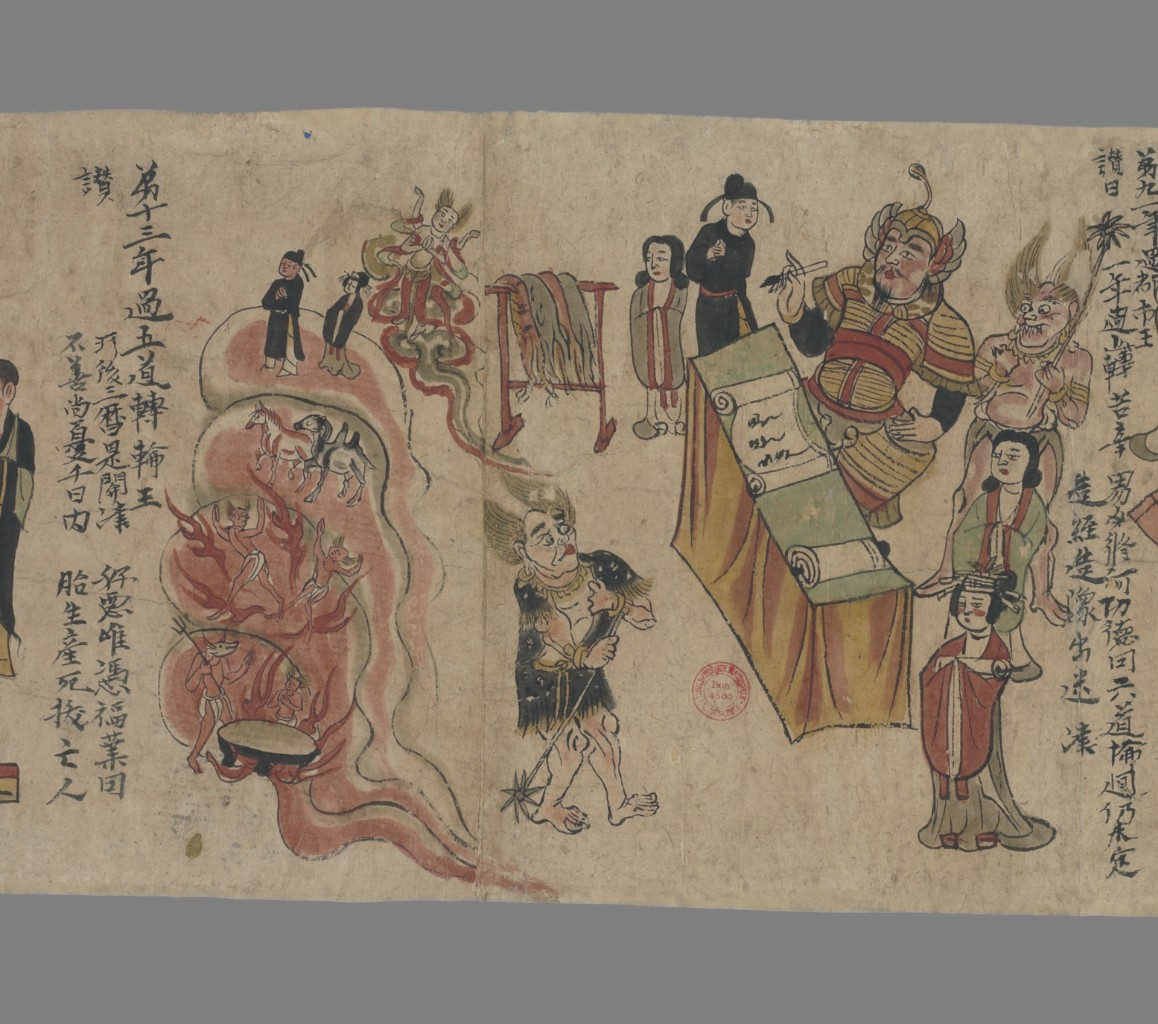 第九一年過都市王
讃曰 一年過此轉苦辛 男女修何功德因 六道輪迴仍未定
造經造像出迷津
第十三年過五道轉輪王
讃
所後三曆是關津 好惡唯憑福業因
不善尚憂千日内 胎生產死拔亡人
Don
4502